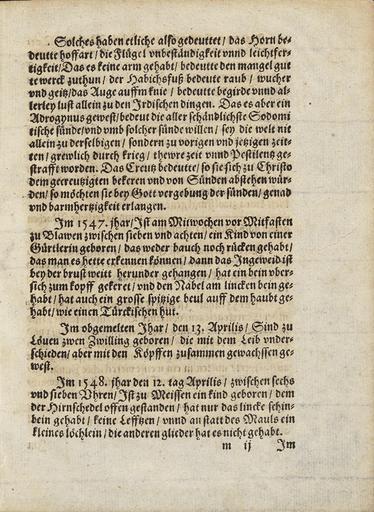 Solches haben etliche also gedeuttet/ das Horn be-
deutte hoffart/ die Flügel vnbeständigkeit vnnd leichtfer-
tigkeit/ Das es keine arm gehabt/ bedeutte den mangel gut
te werck zuthun/ der Habichsfuß bedeute raub/ wucher
vnd geitz/ das Auge auffm knie/ bedeutte begirde vnnd al-
lerley lust allein zu den Irdischen dingen. Das es aber ein
Adrogynus gewest/ bedeut die aller schändlichste Sodomi
tische sünde/ vnd vmb solcher sünde willen/ sey die welt nit
allein zu derselbigen/ sondern zu vorigen vnd jetzigen zeit-
ten/ grewlich durch krieg/ thewre zeit vnnd Pestilentz ge-
strafft worden. Das Creutz bedeutte/ so sie sich zu Christo
dem gecreutzigten bekeren vnd von Sünden abstehen wür-
den/ so möchten sie bey Gott vergebung der sünden/ genad
vnd barmhertzigkeit erlangen.
Im 1547. jhar/ Ist am Mitwochen vor Mitfasten
zu Blawen zwischen sieben vnd achten/ ein Kind von einer
Gürtlerin geboren/ das weder bauch noch rücken gehabt/
das man es hette erkennen können/ dann das Ingeweid ist
bey der brust weitt herunder gehangen/ hat ein bein vber-
sich zum kopff gekeret/ vnd den Nabel am lincken bein ge-
habt/ hat auch ein grosse spitzige beul auff dem haubt ge-
habt/ wie einen Türckischen hut.
Im obgemelten Jhar/ den 13. Aprilis/ Sind zu
Löuen zwen Zwilling geboren/ die mit dem Leib vnder-
schieden/ aber mit den Köpffen zusammen gewachssen ge-
west.
Im 1548. jhar den 12. tag Aprilis/ zwischen sechs
vnd sieben Vhren/ Ist zu Meissen ein kind geboren/ dem
der Hirnschedel offen gestanden/ hat nur das lincke schin-
bein gehabt/ keine Lefftzen/ vnnd an statt des Mauls ein
kleines löchlein/ die anderen glieder hat es nicht gehabt.
m ij Im